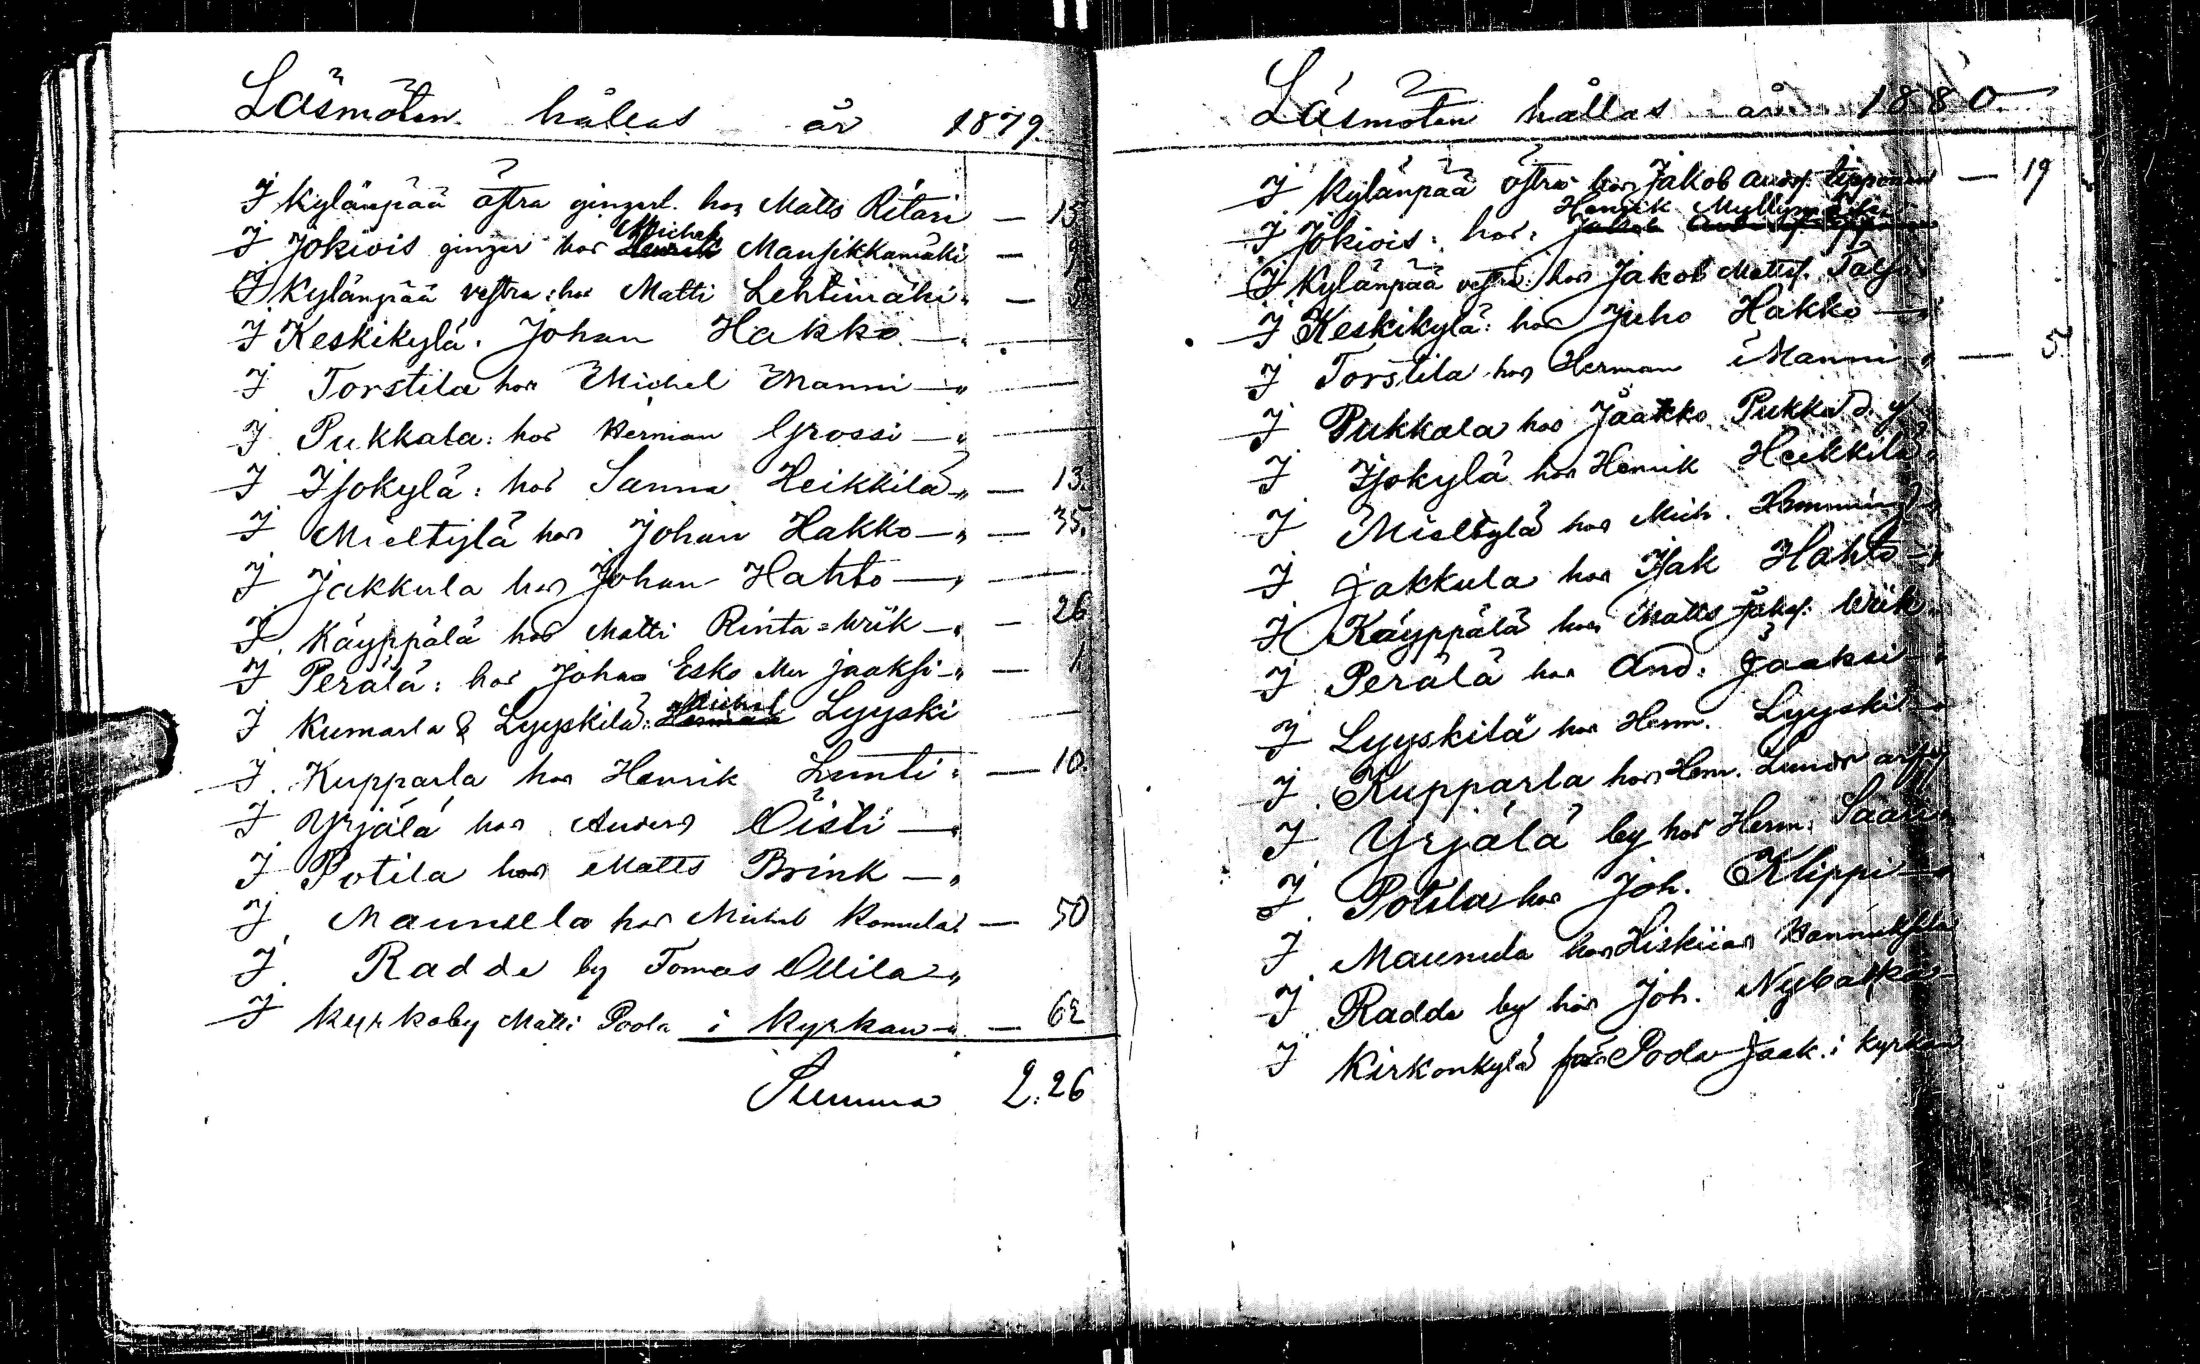 Läsmöten hållas år 1879.
I Kylänpää östra ginzerl. hos Matts Ritari — 15
I Jokivis ginzer hos Michel Mansikkamäki — 9
I Kylänpää vestra: hos Matti Lehtimäki " — 5
I Keskikylä. Johan Hakko — "
I Torstila hos Michel Manni — "
I Pukkala: hos Herman Grossi — "
I Isokylä: hos Sanna Heikkilä " — 13.
I Mieltylä hos Johan Hakko — " — 35.
I Jakkula hos Johan Hahto — "
I Käyppälä hos Matti Rinta=Wiik — " — 26
I Perälä: hos Johan Esko Jaaksi — " — 1
I Kumarla & Lyyskilä: Michel Lyyski
I Kupparla hos Henrik Lemti " — 10.
I Yrjälä hos Anders Öisti — "
I Potila hos Matts Brink — "
I Maunula hos Michel — 50
I Radde by Tomas Ollila "
I Kyrkoby Matti Poola i Kyrkan — " — 62
Summa 2:26
Läsmöten hållas år 1880
I Kylänpää östra hos Jakob Lipponen — 19
I Jokivis: hos: Henrik Myllymäki
I Kylänpää vestra: hos Jakob Matts.
I Keskikylä: hos Juho Hakko — "
I Torstila hos Herman Manni " — 5
I Pukkala hos Jaakko Pukka d. y.
I Isokylä hos Henrik Heikkilä "
I Mieltylä hos Mich. Hemming "
I Jakkula hos Isak Hahto — "
I Käyppälä hos Matts Wiik "
I Perälä hos And: Jaaksi — "
I Lyyskilä hos Herm. Lyyski — "
I Kupparla hos Hem.
I Yrjälä by hos Herm: Saari "
I Potila hos Joh. Klippi — "
I Maunula hos Hiskias Hannuksela
I Radde by hos Joh. Nybacka —
I Kirkonkylä Poola Jaak. i Kyrkan